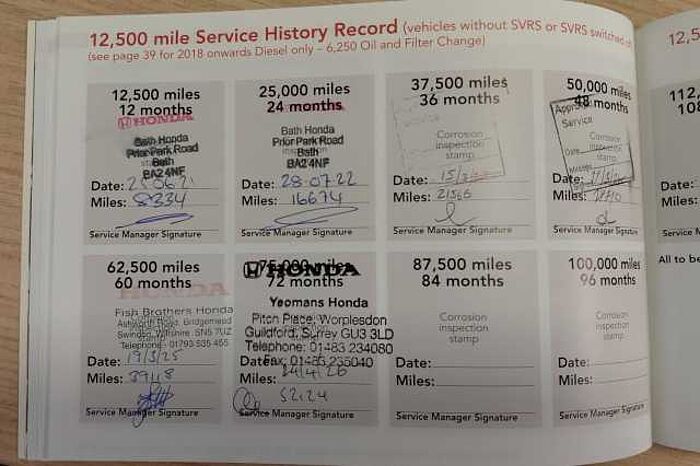 12,500 mile Service History Record (vehicles without SVRS or SVRS switched
(see page 39 for 2018 onwards Diesel only – 6,250 Oil and Filter Change)
12,500 miles
12 months
HONDA
Bath Honda
Prior Park Road
Bath
BA2 4NF
Date: 25.06.21
Miles: 8334
Service Manager Signature
25,000 miles
24 months
Bath Honda
Prior Park Road
Bath
BA2 4NF
Date: 28.07.22
Miles: 16674
Service Manager Signature
37,500 miles
36 months
Corrosion
inspection
stamp
Date: 15/3
Miles:
Service Manager Signature
50,000 miles
48 months
Service
Corrosion
inspection
stamp
Date:
Miles:
Service Manager Signature
62,500 miles
60 months
HONDA
Fish Brothers Honda
Ashworth Road, Bridgemead
Swindon, Wiltshire, SN5 7UZ
Telephone: 01793 535 455
Date: 19/3/25
Miles:
Service Manager Signature
75,000 miles
HONDA
72 months
Yeomans Honda
Pitch Place, Worplesdon
Guildford, Surrey GU3 3LD
Telephone: 01483 234080
Fax: 01483 235040
Date:
Miles:
Service Manager Signature
87,500 miles
84 months
Corrosion
inspection
stamp
Date:
Miles:
Service Manager Signature
100,000 miles
96 months
Corrosion
inspection
stamp
Date:
Miles:
Service Manager Signature
12,5
112,
108
Date:
Miles:
Service Man
All to be